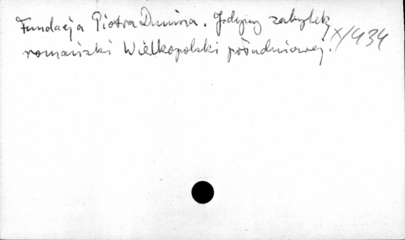 Fundacja Piotra Dunina. Jedyny zabytek
romański Wielkopolski południowej. IX/434